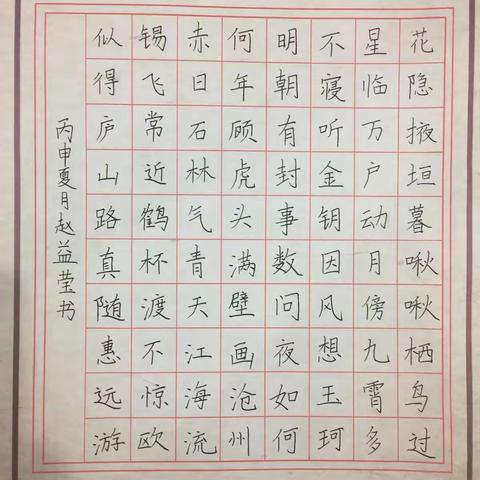 花隐掖垣暮啾啾栖鸟过
星临万户动月傍九霄多
不寝听金钥因风想玉珂
明朝有封事数问夜如何
何年顾虎头满壁画沧州
赤日石林气青天江海流
锡飞常近鹤杯渡不惊欧
似得庐山路真随惠远游
丙申夏月赵益莹书